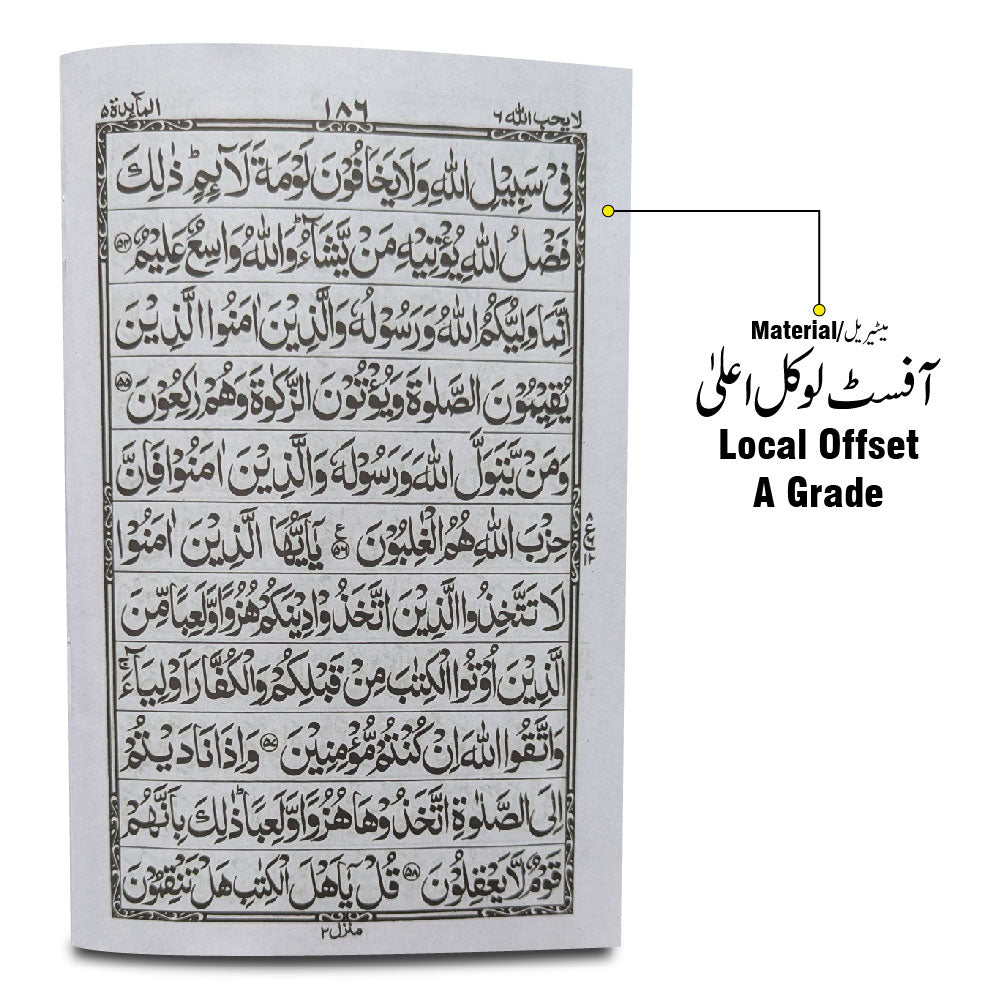 لا یحب اللہ ۶ ۱۸۶ المآئدة ۵
فِیْ سَبِیْلِ اللّٰهِ وَلَا یَخَافُوْنَ لَوْمَةَ لَآئِمٍ ؕ ذٰلِكَ
فَضْلُ اللّٰهِ یُؤْتِیْهِ مَنْ یَّشَآءُ ؕ وَاللّٰهُ وَاسِعٌ عَلِیْمٌ ۝۵۴
اِنَّمَا وَلِیُّكُمُ اللّٰهُ وَرَسُوْلُهٗ وَالَّذِیْنَ اٰمَنُوا الَّذِیْنَ
یُقِیْمُوْنَ الصَّلٰوةَ وَیُؤْتُوْنَ الزَّكٰوةَ وَهُمْ رٰكِعُوْنَ ۝۵۵
وَمَنْ یَّتَوَلَّ اللّٰهَ وَرَسُوْلَهٗ وَالَّذِیْنَ اٰمَنُوْا فَاِنَّ
حِزْبَ اللّٰهِ هُمُ الْغٰلِبُوْنَ ۝۵۶ ع یٰۤاَیُّهَا الَّذِیْنَ اٰمَنُوْا
لَا تَتَّخِذُوا الَّذِیْنَ اتَّخَذُوْا دِیْنَكُمْ هُزُوًا وَّلَعِبًا مِّنَ
الَّذِیْنَ اُوْتُوا الْكِتٰبَ مِنْ قَبْلِكُمْ وَالْكُفَّارَ اَوْلِیَآءَ ۚ
وَاتَّقُوا اللّٰهَ اِنْ كُنْتُمْ مُّؤْمِنِیْنَ ۝۵۷ وَاِذَا نَادَیْتُمْ
اِلَی الصَّلٰوةِ اتَّخَذُوْهَا هُزُوًا وَّلَعِبًا ؕ ذٰلِكَ بِاَنَّهُمْ
قَوْمٌ لَّا یَعْقِلُوْنَ ۝۵۸ قُلْ یٰۤاَهْلَ الْكِتٰبِ هَلْ تَنْقِمُوْنَ
منزل ۲
Material/میٹیریل
آفسٹ لوکل اعلیٰ
Local Offset
A Grade